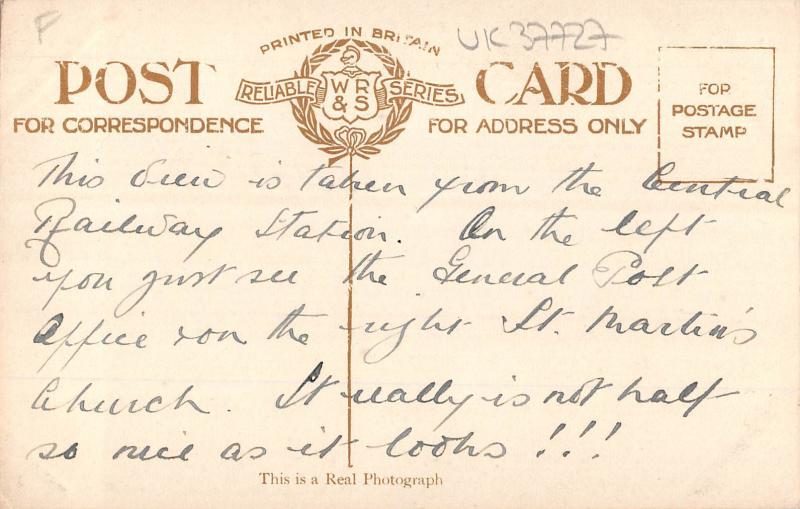 F
UK 37727
PRINTED IN BRITAIN
POST CARD
RELIABLE WR & S SERIES
FOR CORRESPONDENCE
FOR ADDRESS ONLY
FOR
POSTAGE
STAMP
This view is taken from the Central
Railway Station. On the left
you just see the General Post
Office & on the right St. Martin's
Church. It really is not half
so nice as it looks!!!
This is a Real Photograph